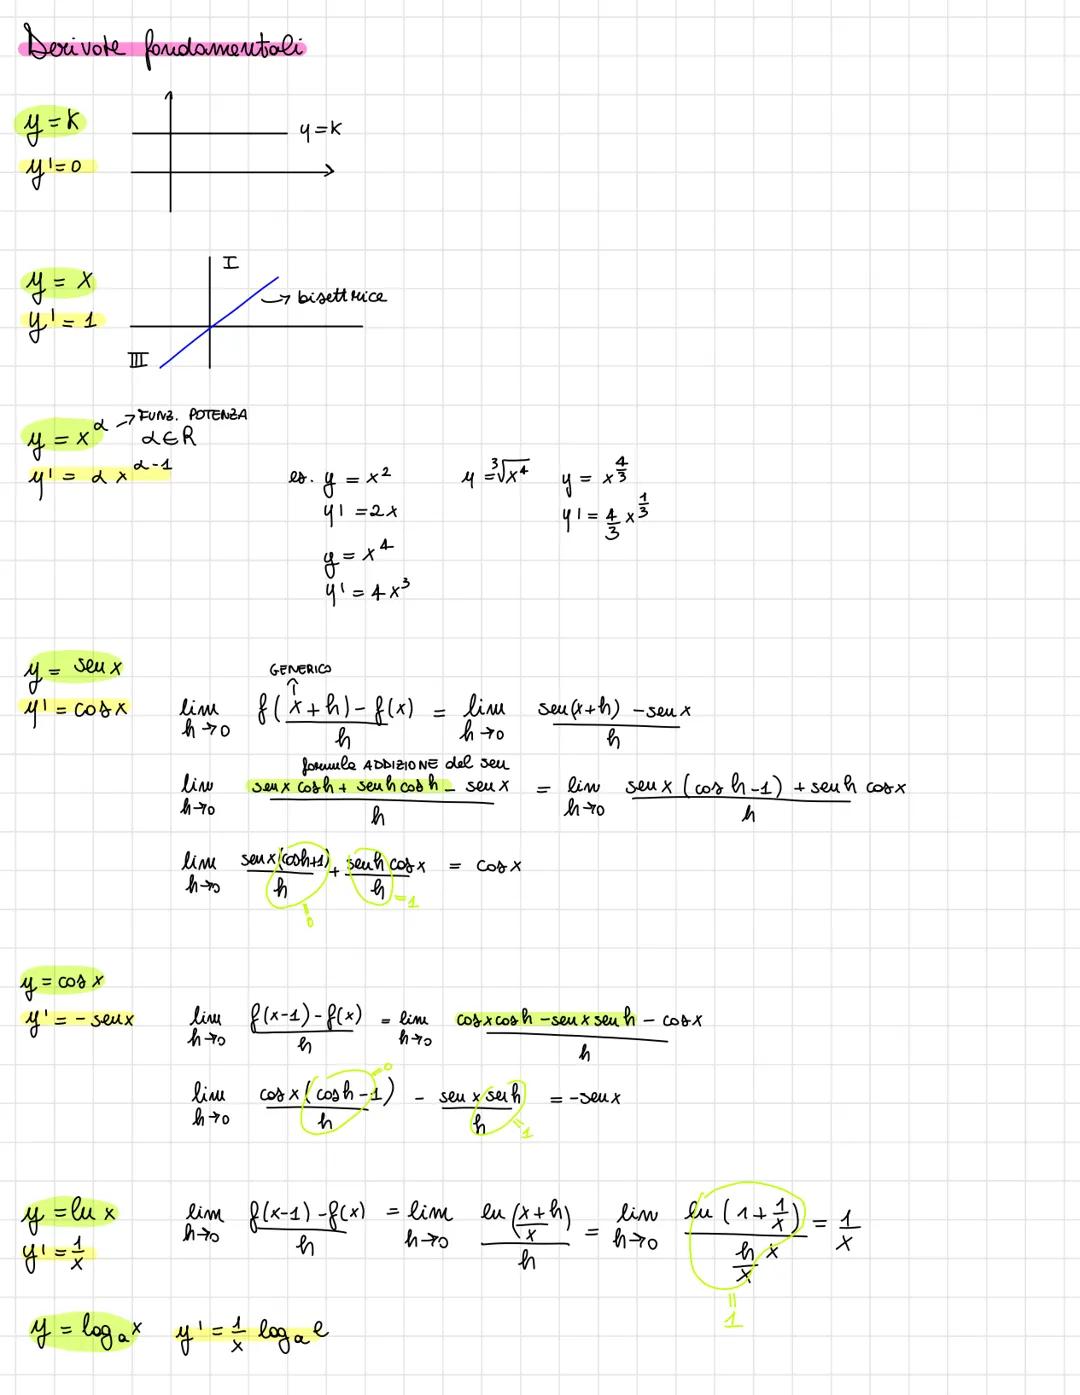 Derivate fondamentali
y = k
y = k
y' = 0
I
y = x
bisettrice
y' = 1
III
y = x^α → FUNZ. POTENZA
α ∈ R
y' = α x^(α-1)
es. y = x² y = ∛x⁴ y = x^(4/3)
y' = 2x y' = 4/3 x^(1/3)
y = x⁴
y' = 4x³
y = sen x
GENERICO
y' = cos x lim h→0 (f(x+h) - f(x))/h = lim h→0 (sen(x+h) - sen x)/h
formula ADDIZIONE del sen
lim h→0 (sen x cos h + sen h cos h - sen x)/h = lim h→0 (sen x (cos h - 1) + sen h cos x)/h
lim h→0 (sen x (cos h + 1))/h + (sen h cos x)/h = cos x
= 0 = 1
y = cos x
y' = - sen x lim h→0 (f(x-1) - f(x))/h = lim h→0 (cos x cos h - sen x sen h - cos x)/h
lim h→0 (cos x (cos h - 1))/h - (sen x sen h)/h = - sen x
= 0 = 1
y = ln x lim h→0 (f(x-1) - f(x))/h = lim h→0 (ln ((x+h)/x))/h = lim h→0 (ln (1 + 1/x))/(h/x x) = 1/x
y' = 1/x
= 1
y = log_a x y' = 1/x log_a e